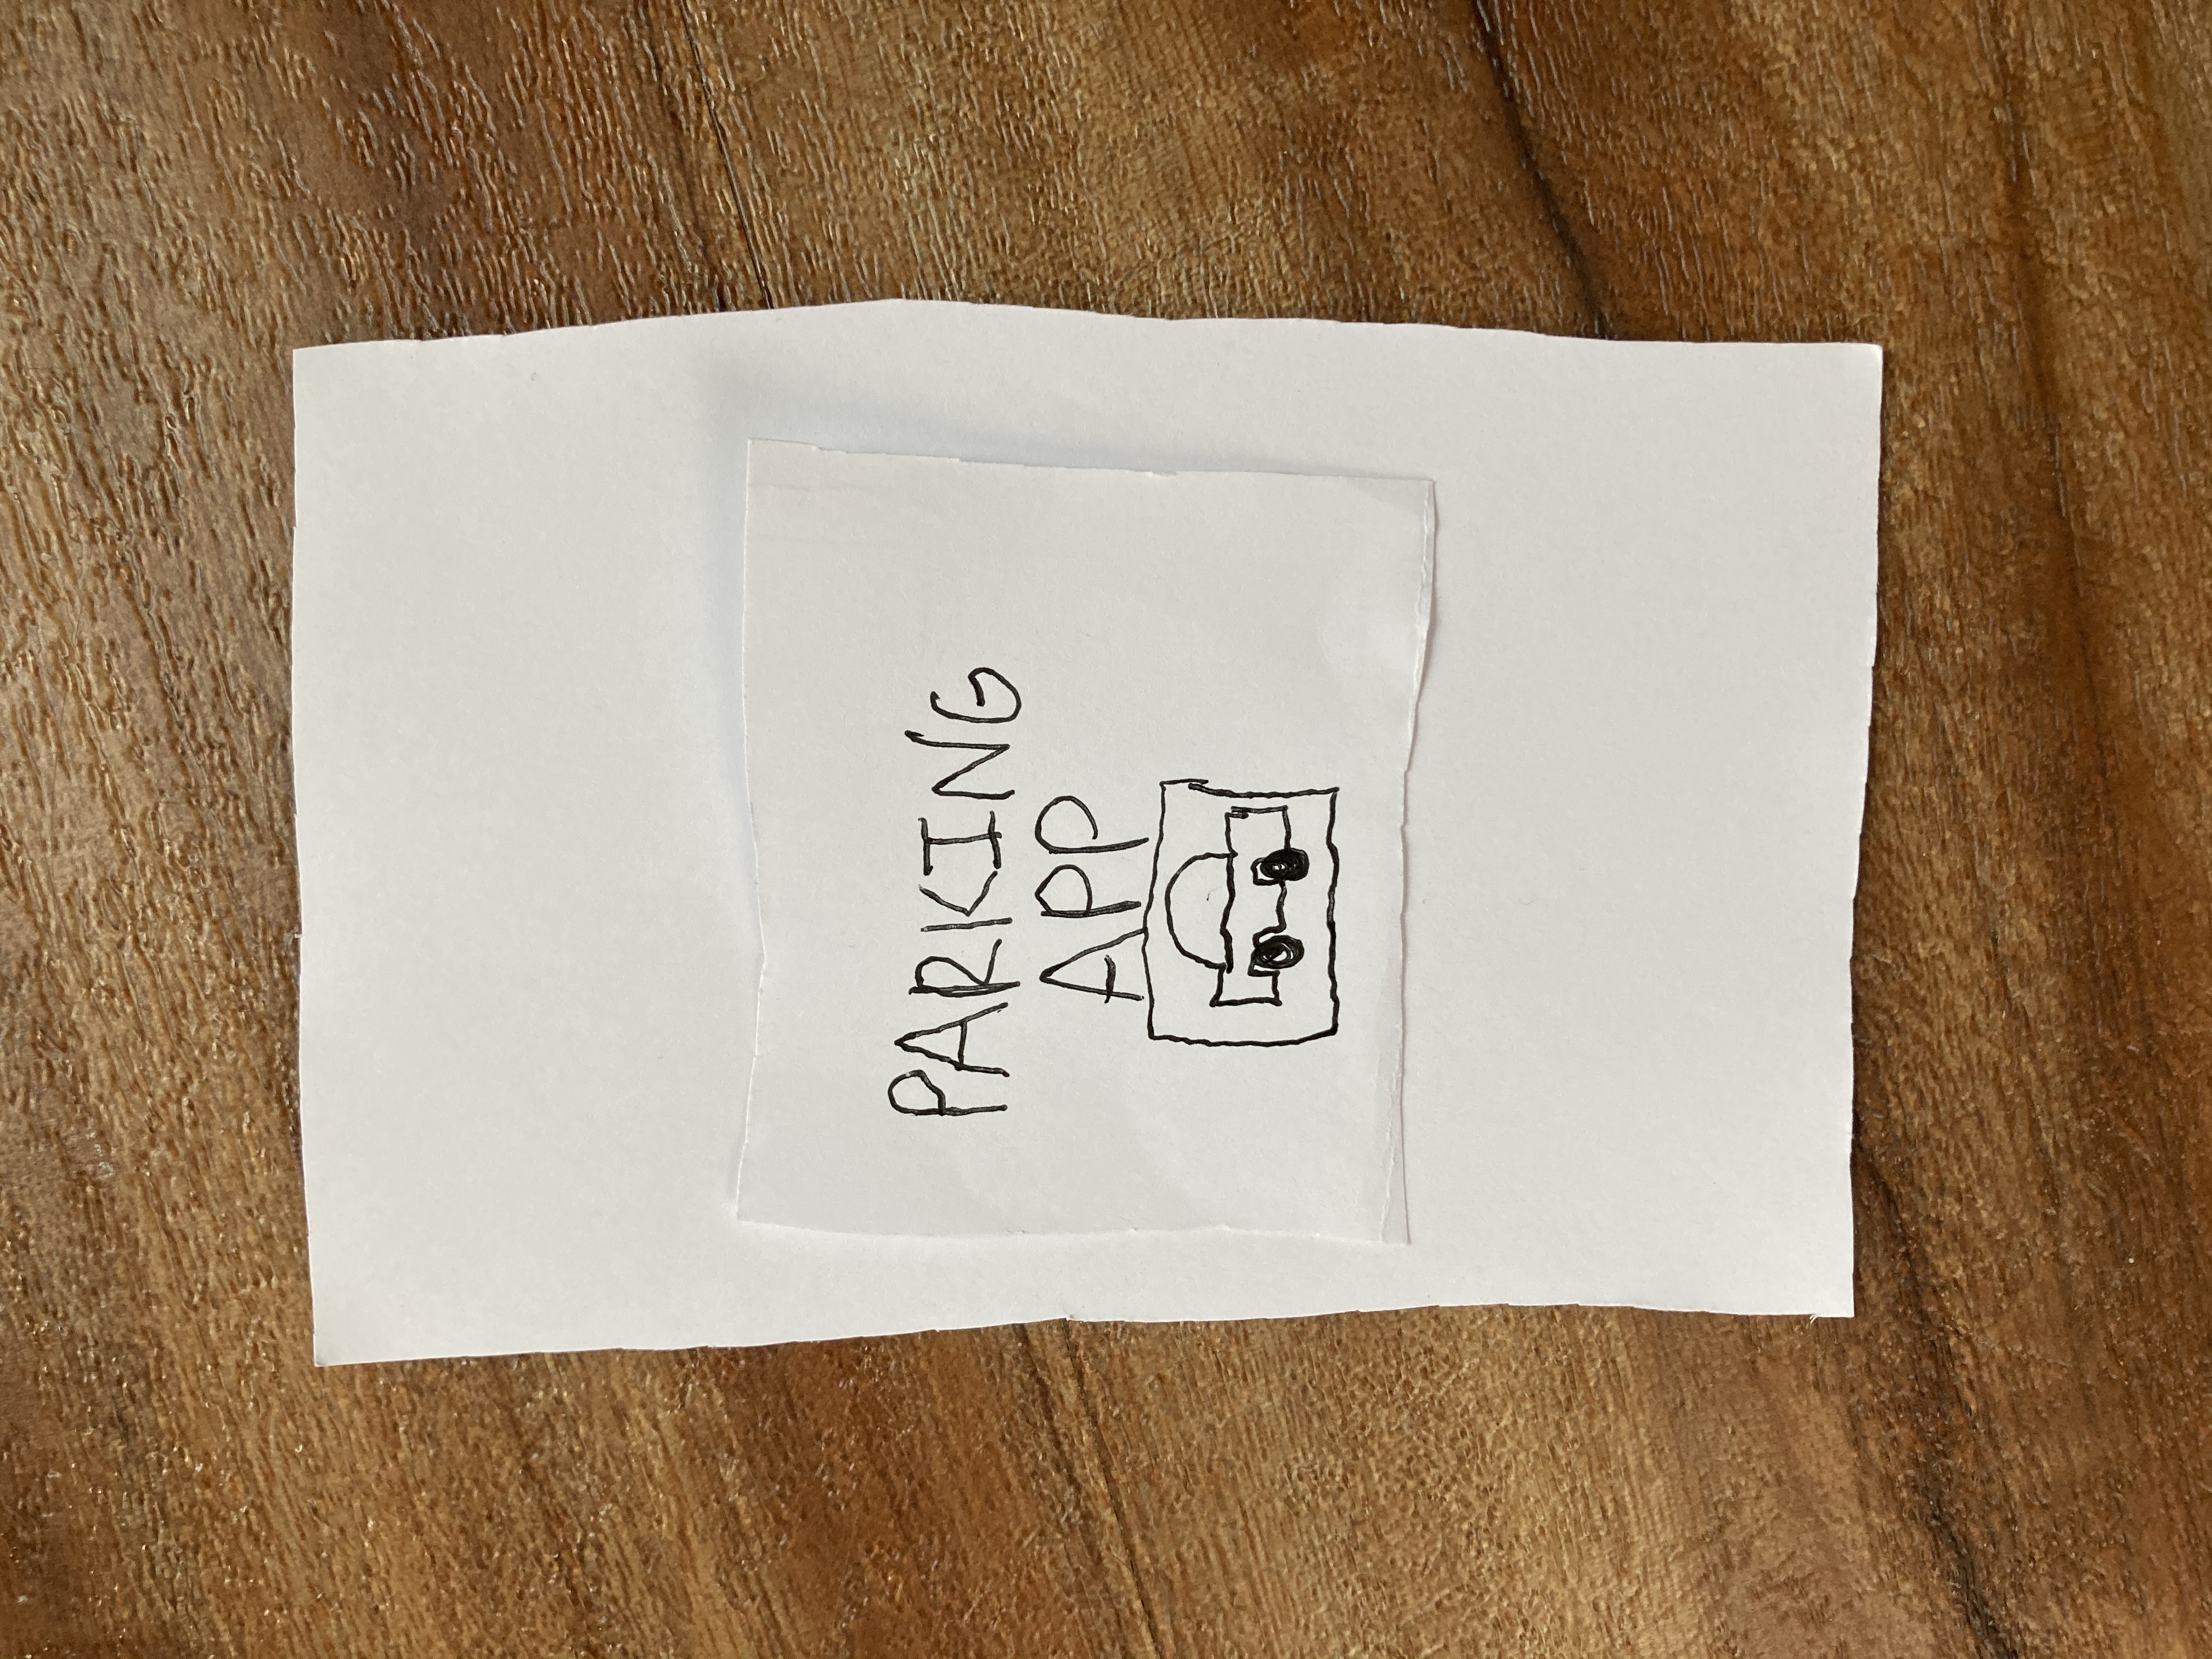 PARKING
APP